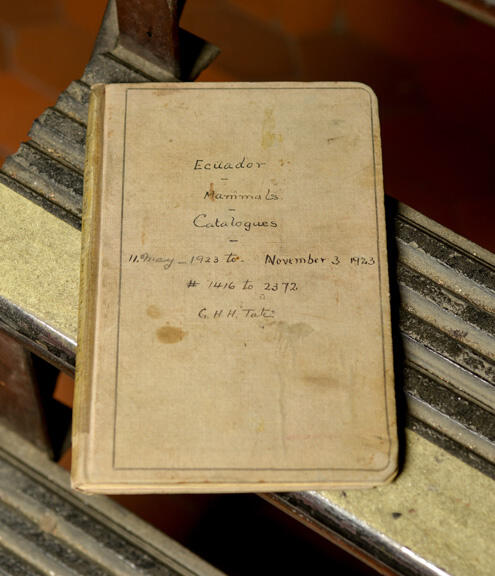 Ecuador
-
Mammals.
-
Catalogues
-
11. May - 1923 to November 3 1923
# 1416 to 2372
G. H. H. Tate